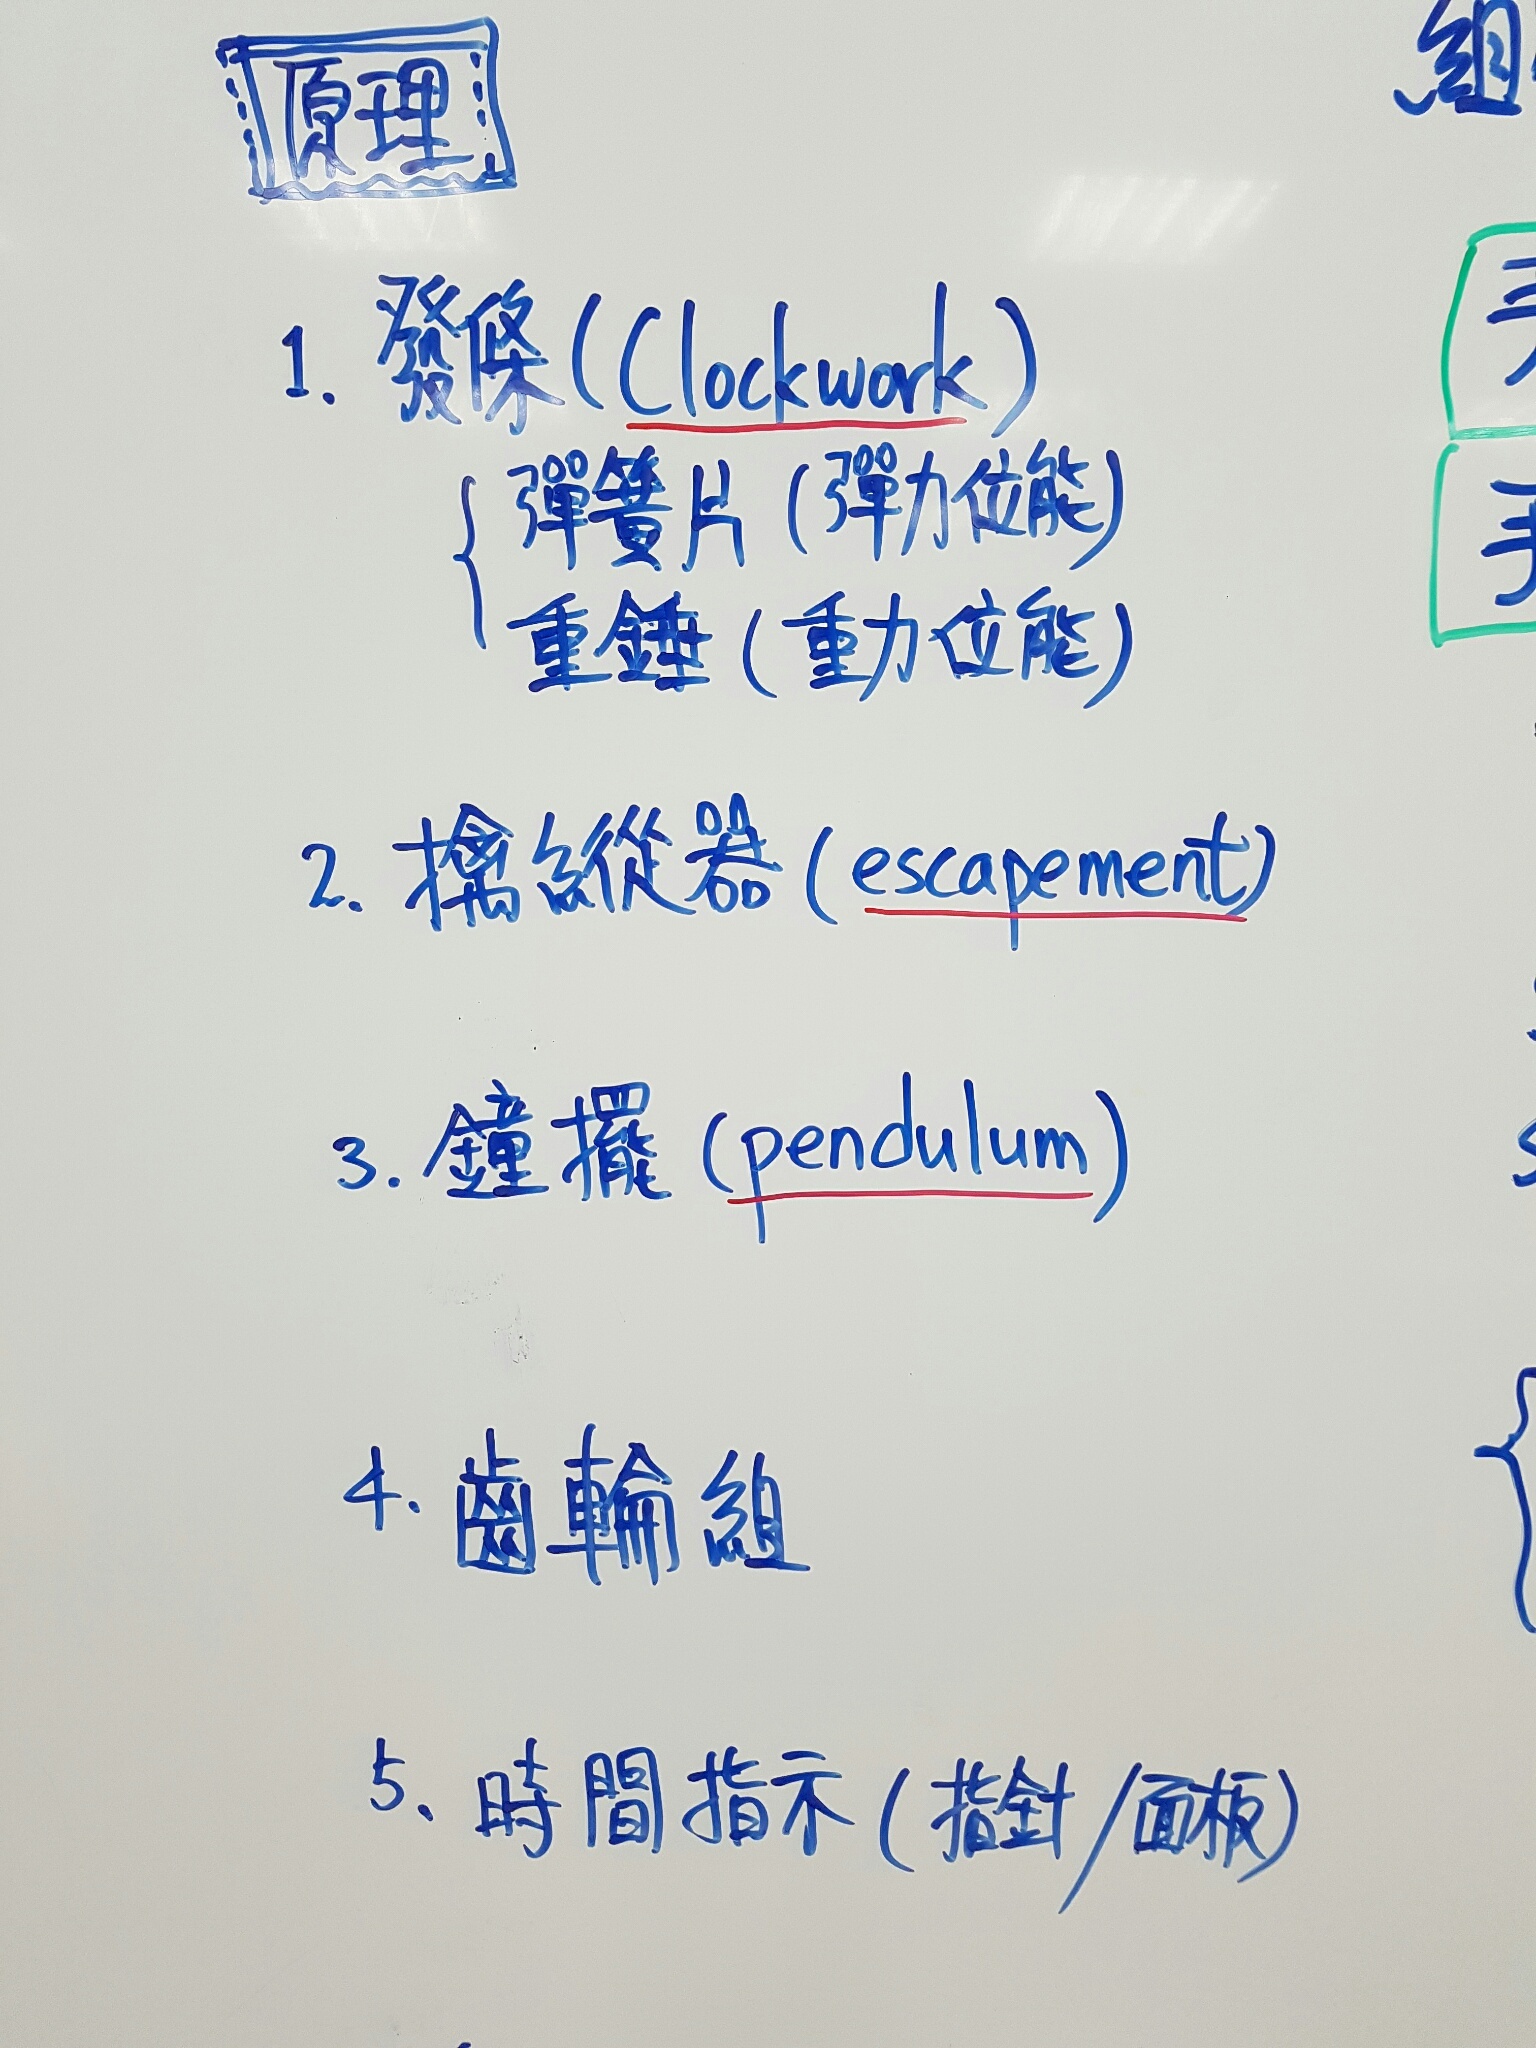 原理
1. 發條(Clockwork)
彈簧片(彈力位能)
重錘(重力位能)
2. 擒縱器(escapement)
3. 鐘擺(pendulum)
4. 齒輪組
5. 時間指示(指針/面板)
組